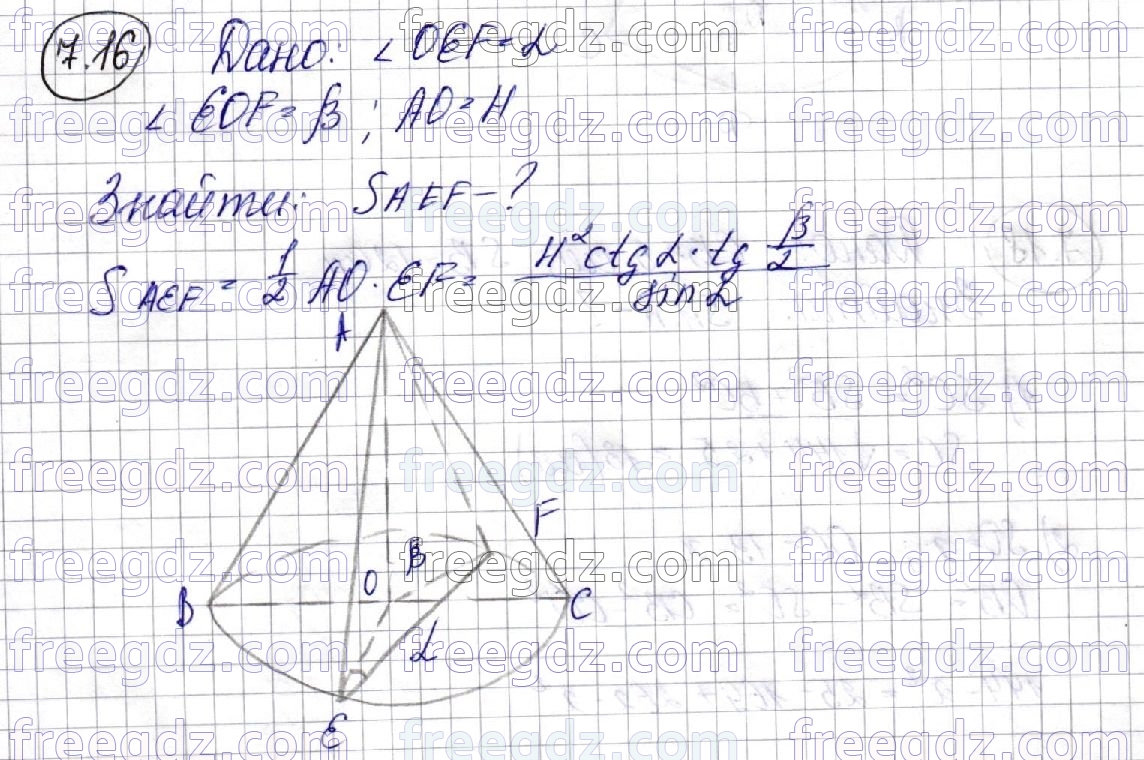 7.16 Дано: ∠ OEF = α
∠ EOF = β ; AO = H
Знайти: S AEF - ?
S AEF = 1/2 AO · EF = H² ctg α · tg β/2 / sin α
A
F
B O β C
α
E
freegdz.com